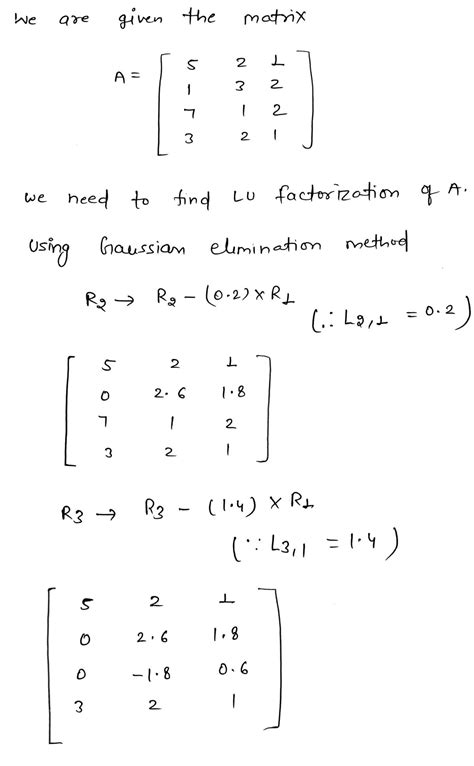 We are given the matrix
A = [ 5 2 1
1 3 2
7 1 2
3 2 1 ]
We need to find LU factorization of A.
Using Gaussian elimination method
R2 → R2 - (0.2) × R1
(∴ L2,1 = 0.2)
[ 5 2 1
0 2.6 1.8
7 1 2
3 2 1 ]
R3 → R3 - (1.4) × R1
(∵ L3,1 = 1.4)
[ 5 2 1
0 2.6 1.8
0 -1.8 0.6
3 2 1 ]